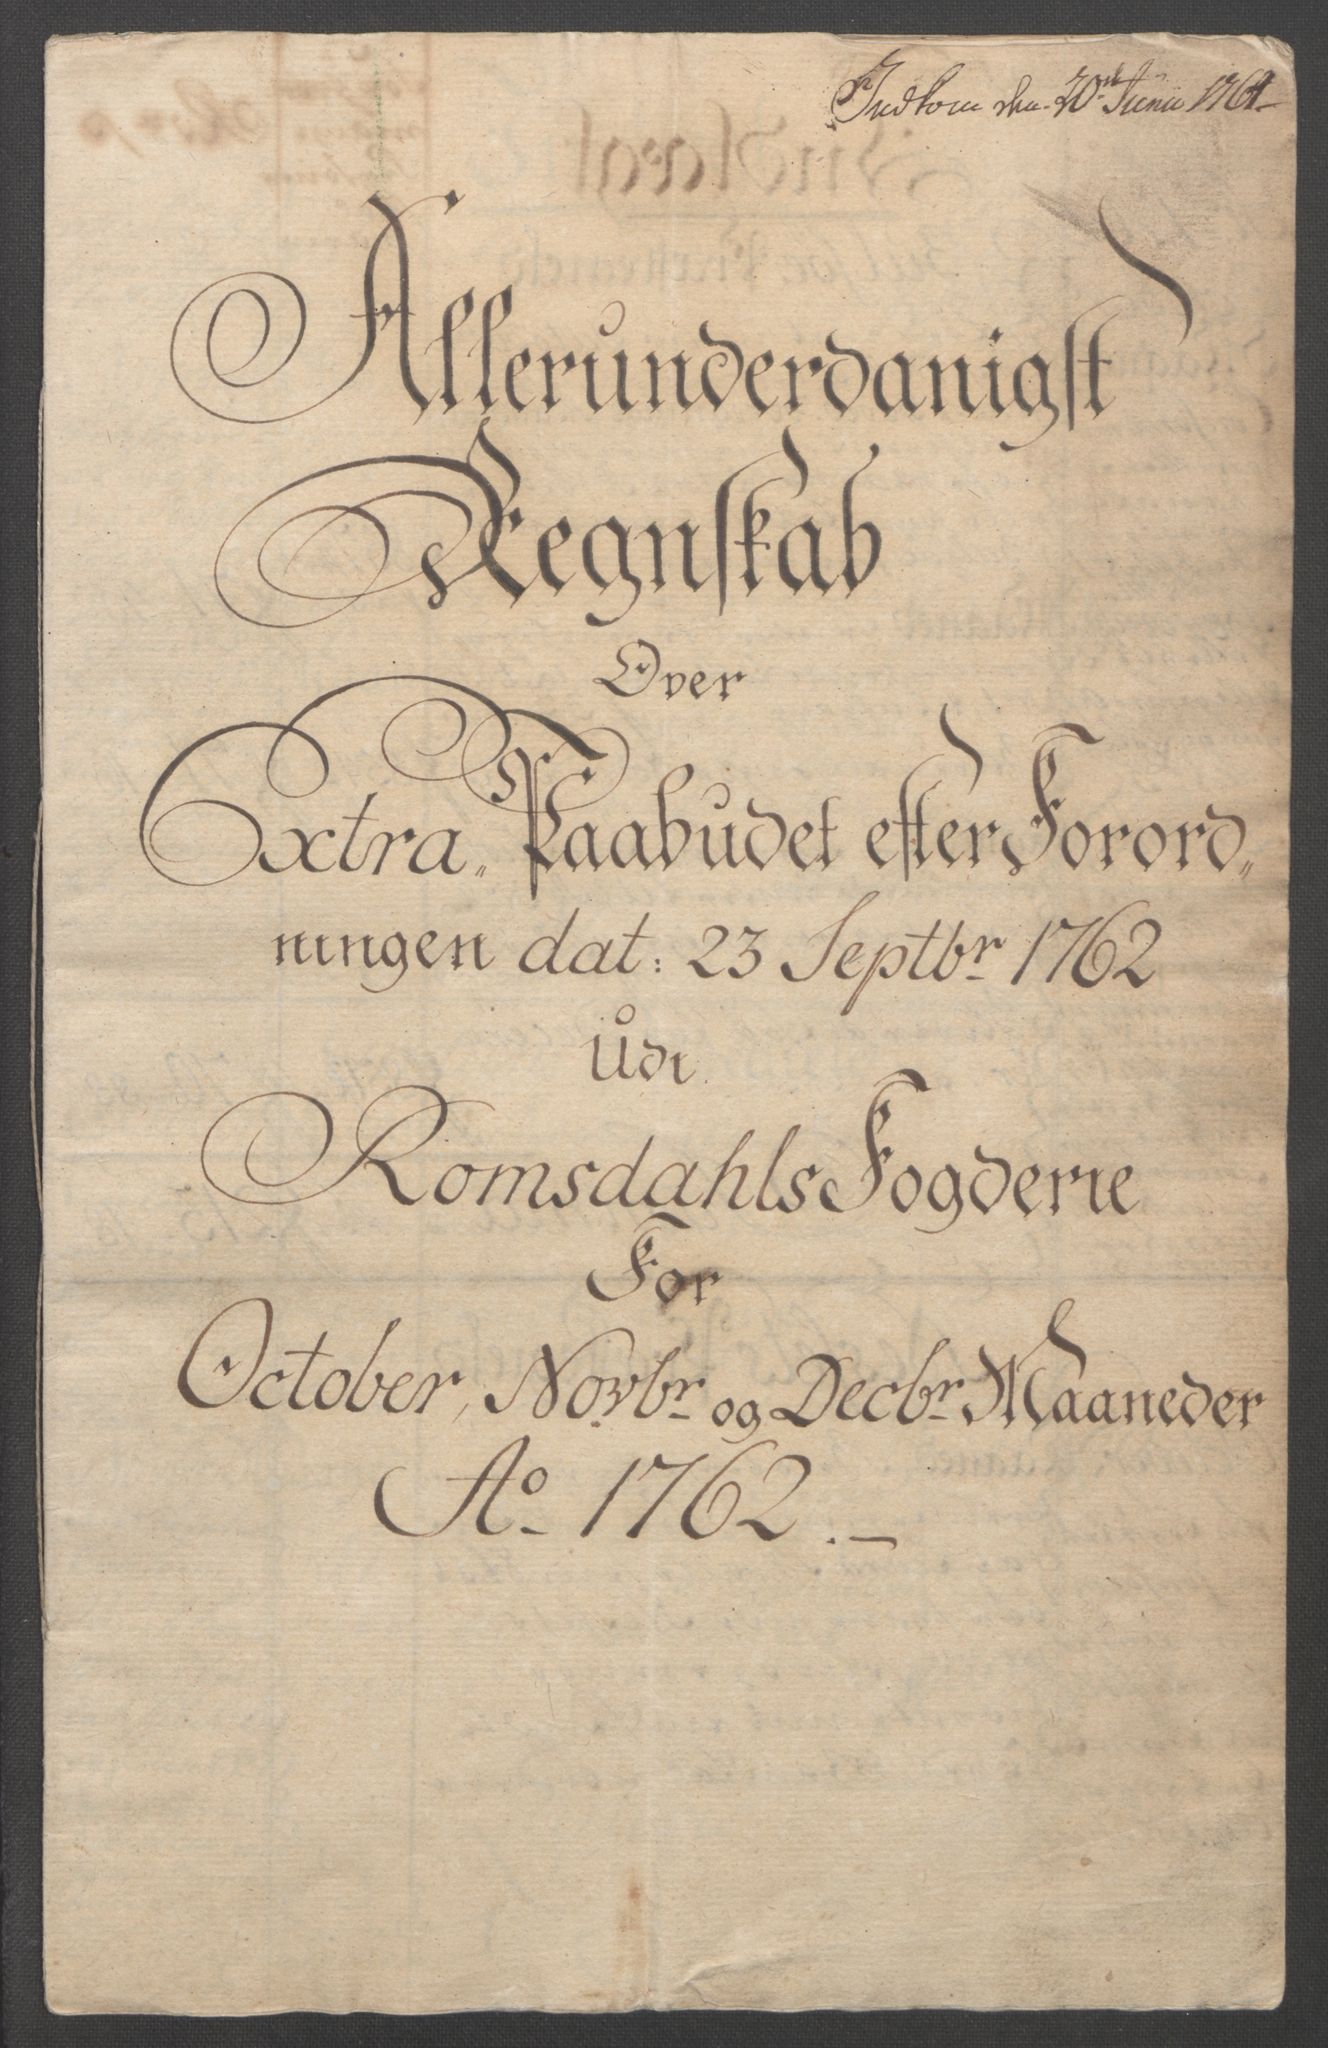 Indkom den 20de Junii 1764
Allerunderdanigst
Regnskab
Over
Extra„ Paabudet efter Forord„
ningen dat: 23 Septbr 1762
Udi
Romsdahls Fogderie
For
October, Novbr og Decbr Maaneder
Ao 1762. —